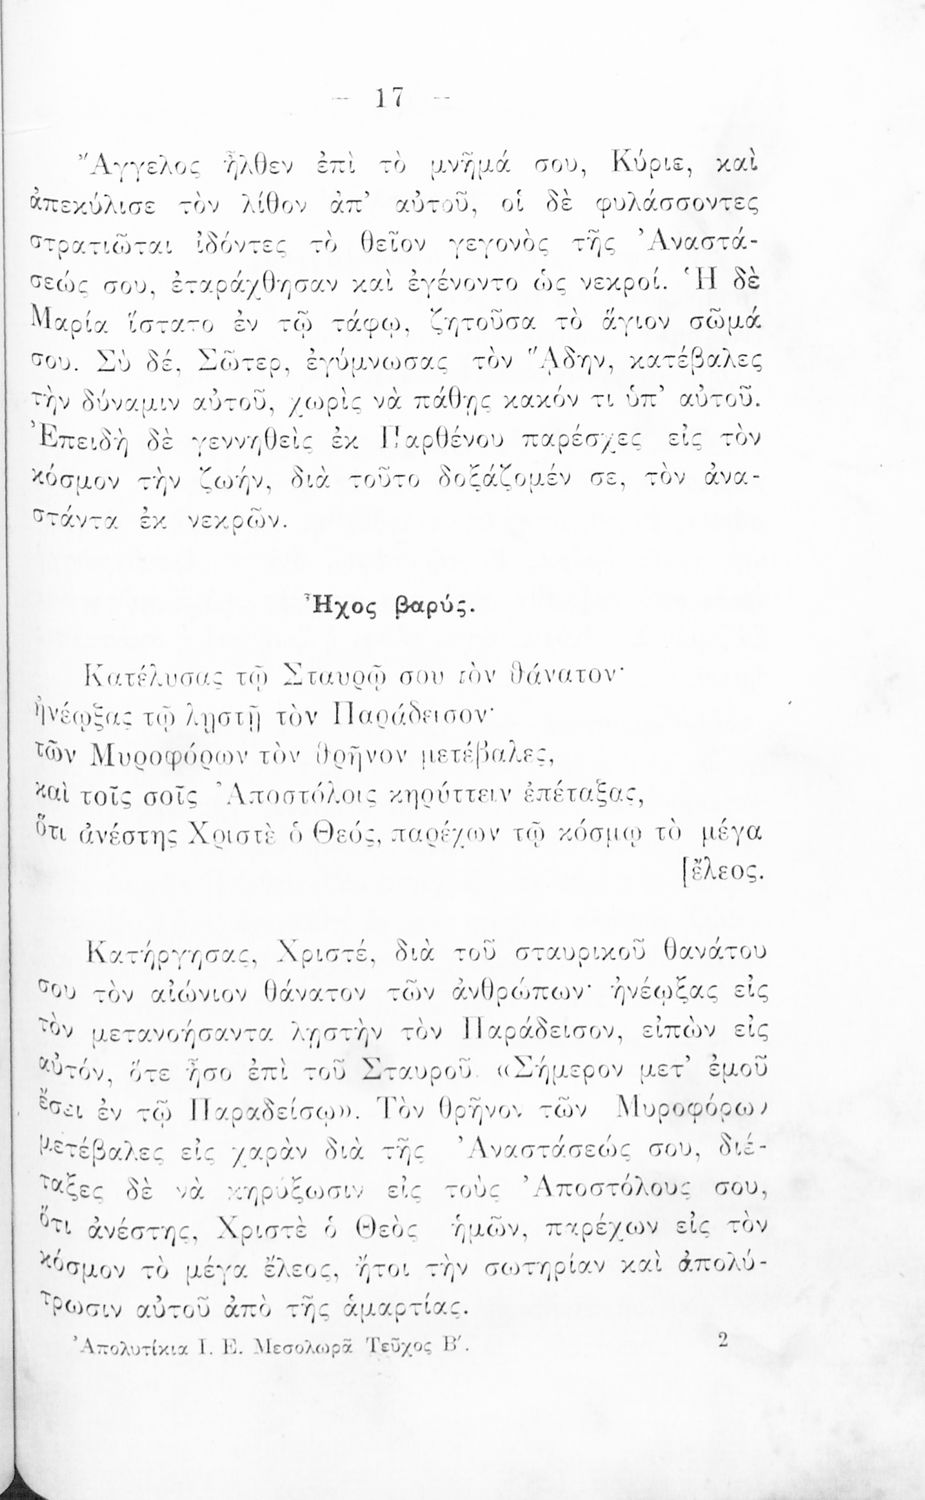 — 17 —
Ἄγγελος ἦλθεν ἐπὶ τὸ μνῆμά σου, Κύριε, καὶ
ἀπεκύλισε τὸν λίθον ἀπ’ αὐτοῦ, οἱ δὲ φυλάσσοντες
στρατιῶται ἰδόντες τὸ θεῖον γεγονὸς τῆς Ἀναστά-
σεώς σου, ἐταράχθησαν καὶ ἐγένοντο ὡς νεκροί. Ἡ δὲ
Μαρία ἵστατο ἐν τῷ τάφῳ, ζητοῦσα τὸ ἅγιον σῶμά
σου. Σὺ δέ, Σῶτερ, ἐγύμνωσας τὸν Ἅδην, κατέβαλες
τὴν δύναμιν αὐτοῦ, χωρὶς νὰ πάθῃς κακόν τι ὑπ’ αὐτοῦ.
Ἐπειδὴ δὲ γεννηθεὶς ἐκ Παρθένου παρέσχες εἰς τὸν
κόσμον τὴν ζωήν, διὰ τοῦτο δοξάζομέν σε, τὸν ἀνα-
στάντα ἐκ νεκρῶν.
Ἦχος βαρύς.
Κατέλυσας τῷ Σταυρῷ σου τὸν θάνατον·
ἠνέῳξας τῷ λῃστῇ τὸν Παράδεισον·
τῶν Μυροφόρων τὸν θρῆνον μετέβαλες,
καὶ τοῖς σοῖς Ἀποστόλοις κηρύττειν ἐπέταξας,
ὅτι ἀνέστης Χριστὲ ὁ Θεός, παρέχων τῷ κόσμῳ τὸ μέγα
[ἔλεος.
Κατήργησας, Χριστέ, διὰ τοῦ σταυρικοῦ θανάτου
σου τὸν αἰώνιον θάνατον τῶν ἀνθρώπων· ἠνέῳξας εἰς
τὸν μετανοήσαντα λῃστὴν τὸν Παράδεισον, εἰπὼν εἰς
αὐτόν, ὅτε ἦσο ἐπὶ τοῦ Σταυροῦ «Σήμερον μετ’ ἐμοῦ
ἔσει ἐν τῷ Παραδείσῳ». Τὸν θρῆνον τῶν Μυροφόρων
μετέβαλες εἰς χαρὰν διὰ τῆς Ἀναστάσεώς σου, διέ-
ταξες δὲ νὰ κηρύξωσιν εἰς τοὺς Ἀποστόλους σου,
ὅτι ἀνέστης, Χριστὲ ὁ Θεὸς ἡμῶν, παρέχων εἰς τὸν
κόσμον τὸ μέγα ἔλεος, ἤτοι τὴν σωτηρίαν καὶ ἀπολύ-
τρωσιν αὐτοῦ ἀπὸ τῆς ἁμαρτίας.
Ἀπολυτίκια Ι. Ε. Μεσολωρᾶ Τεῦχος Β΄. 2